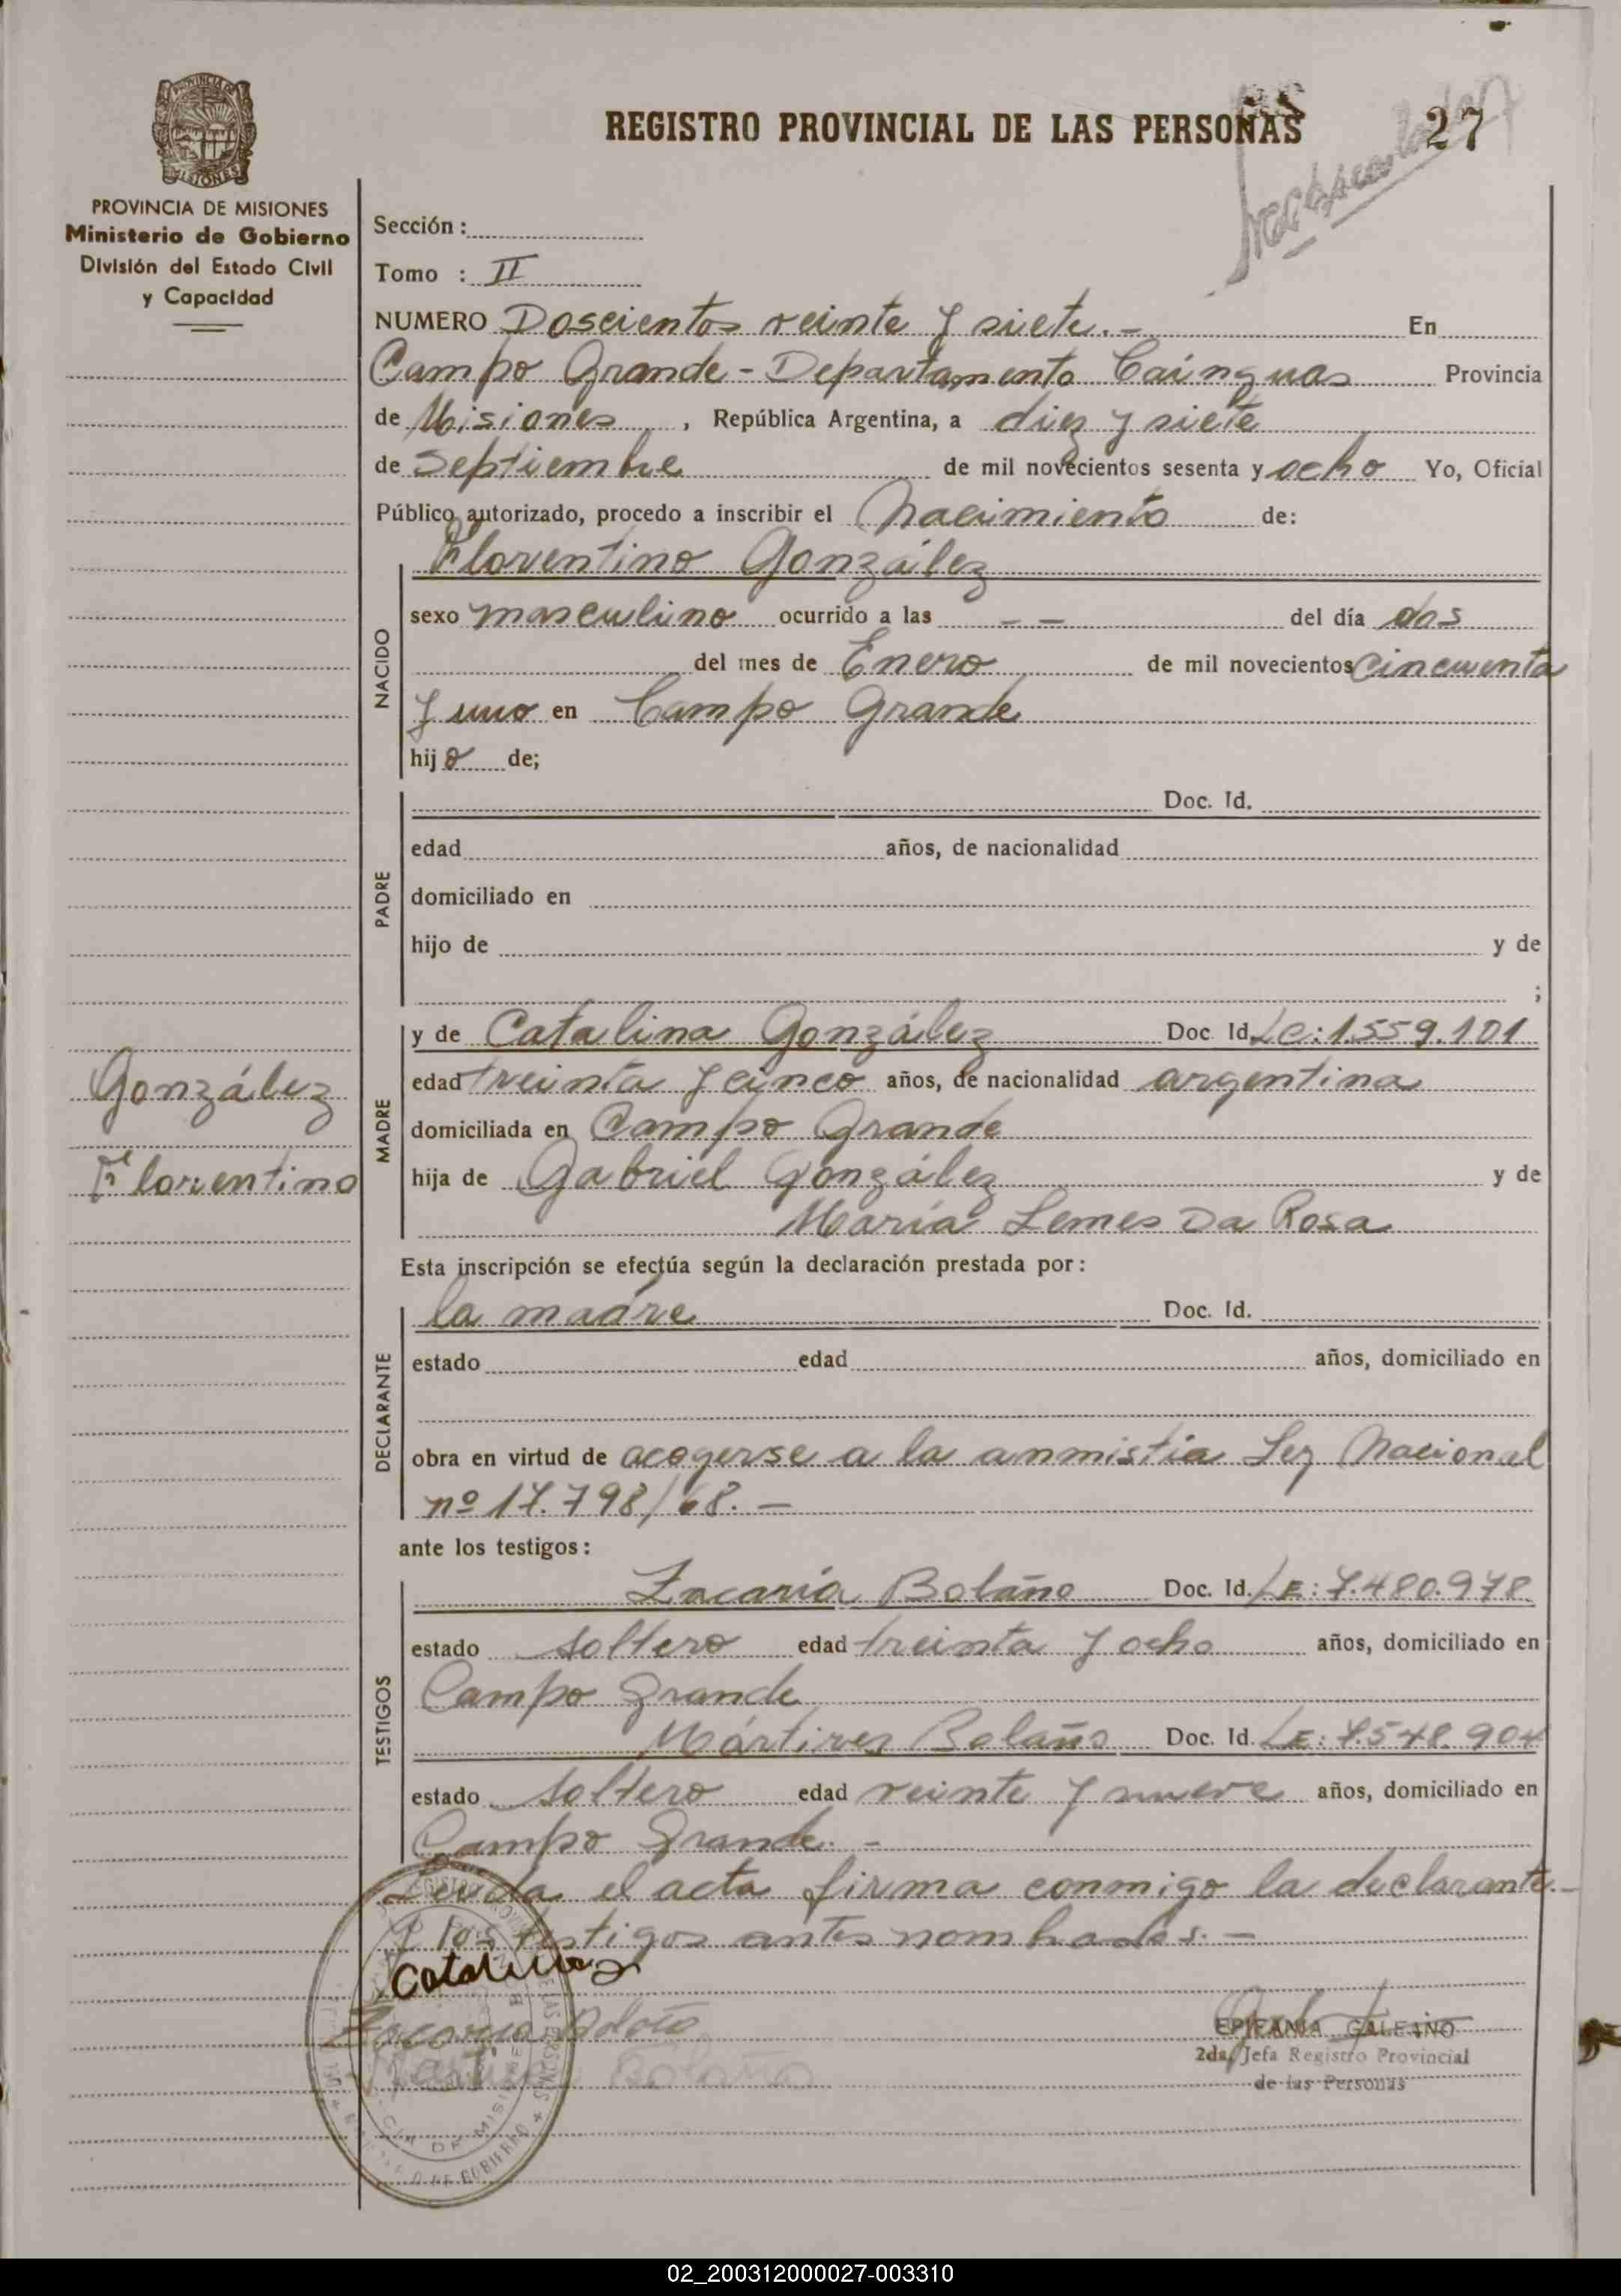 REGISTRO PROVINCIAL DE LAS PERSONAS
27
PROVINCIA DE MISIONES
Ministerio de Gobierno
División del Estado Civil
y Capacidad
Sección :
Tomo : II
NUMERO Doscientos veinte y siete.- En
Campo Grande - Departamento Cainguas Provincia
de Misiones , República Argentina, a diez y siete
de Septiembre de mil novecientos sesenta y ocho Yo, Oficial
Público autorizado, procedo a inscribir el Nacimiento de:
NACIDO
Florentino González
sexo masculino ocurrido a las - - del día dos
del mes de Enero de mil novecientos cincuenta
y uno en Campo Grande
hijo de;
PADRE
Doc. Id.
edad años, de nacionalidad
domiciliado en
hijo de y de
;
MADRE
y de Catalina González Doc. Id. Lc: 1.559.101
edad treinta y cinco años, de nacionalidad argentina
domiciliada en Campo Grande
hija de Gabriel González y de
María Lemes Da Rosa
González
Florentino
Esta inscripción se efectúa según la declaración prestada por:
DECLARANTE
la madre Doc. Id.
estado edad años, domiciliado en
obra en virtud de acogerse a la anmistia Ley Nacional
nº 17.798/68.-
ante los testigos:
TESTIGOS
Zacaría Bolaño Doc. Id. LE: 7.480.978
estado soltero edad treinta y ocho años, domiciliado en
Campo Grande
Mártires Bolaño Doc. Id. LE: 7.548.904
estado soltero edad veinte y nueve años, domiciliado en
Campo Grande.-
Leída el acta firma conmigo la declarante.-
y los testigos antes nombrados.-
Catalina
EPIFANIA GALEANO
2da. Jefa Registro Provincial
de las Personas
02_200312000027-003310